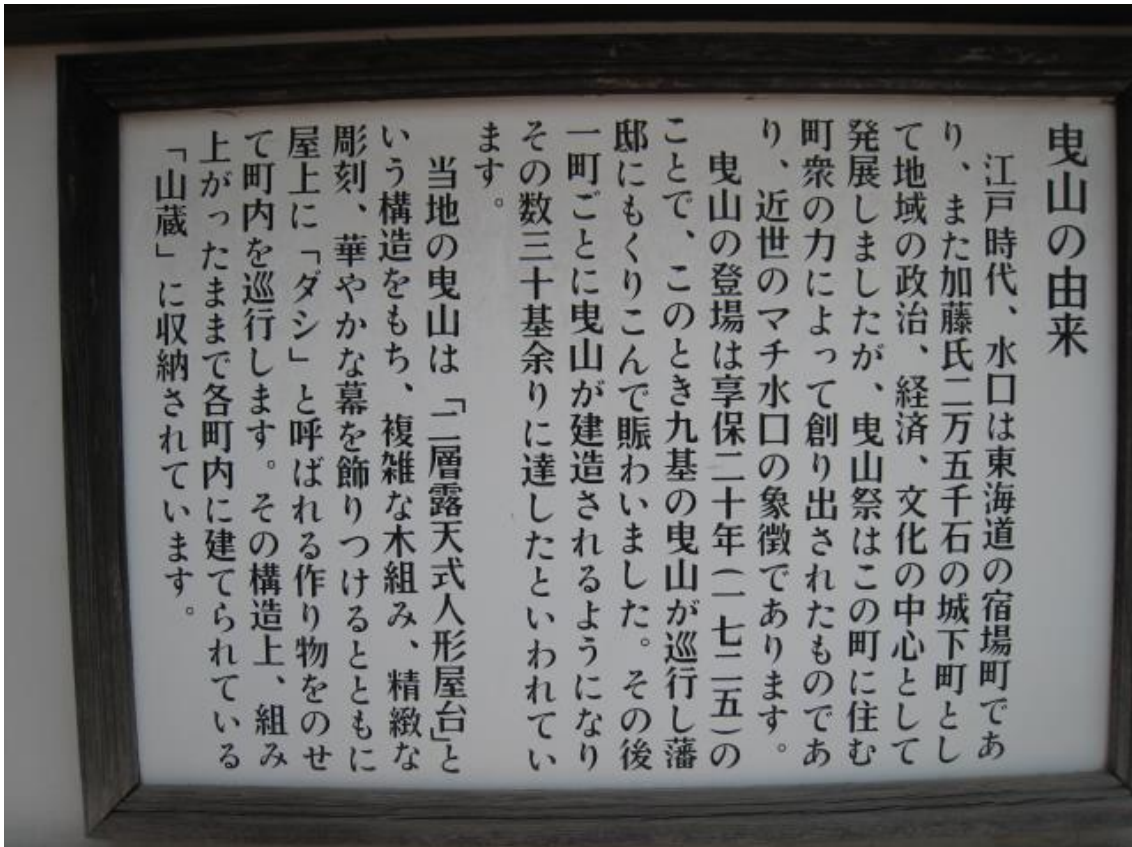 曳山の由来
江戸時代、水口は東海道の宿場町であ
り、また加藤氏二万五千石の城下町とし
て地域の政治、経済、文化の中心として
発展しましたが、曳山祭はこの町に住む
町衆の力によって創り出されたものであ
り、近世のマチ水口の象徴であります。
曳山の登場は享保二十年(一七三五)の
ことで、このとき九基の曳山が巡行し藩
邸にもくりこんで賑わいました。その後
一町ごとに曳山が建造されるようになり
その数三十基余りに達したといわれてい
ます。
当地の曳山は「二層露天式人形屋台」と
いう構造をもち、複雑な木組み、精緻な
彫刻、華やかな幕を飾りつけるとともに
屋上に「ダシ」と呼ばれる作り物をのせ
て町内を巡行します。その構造上、組み
上がったままで各町内に建てられている
「山蔵」に収納されています。